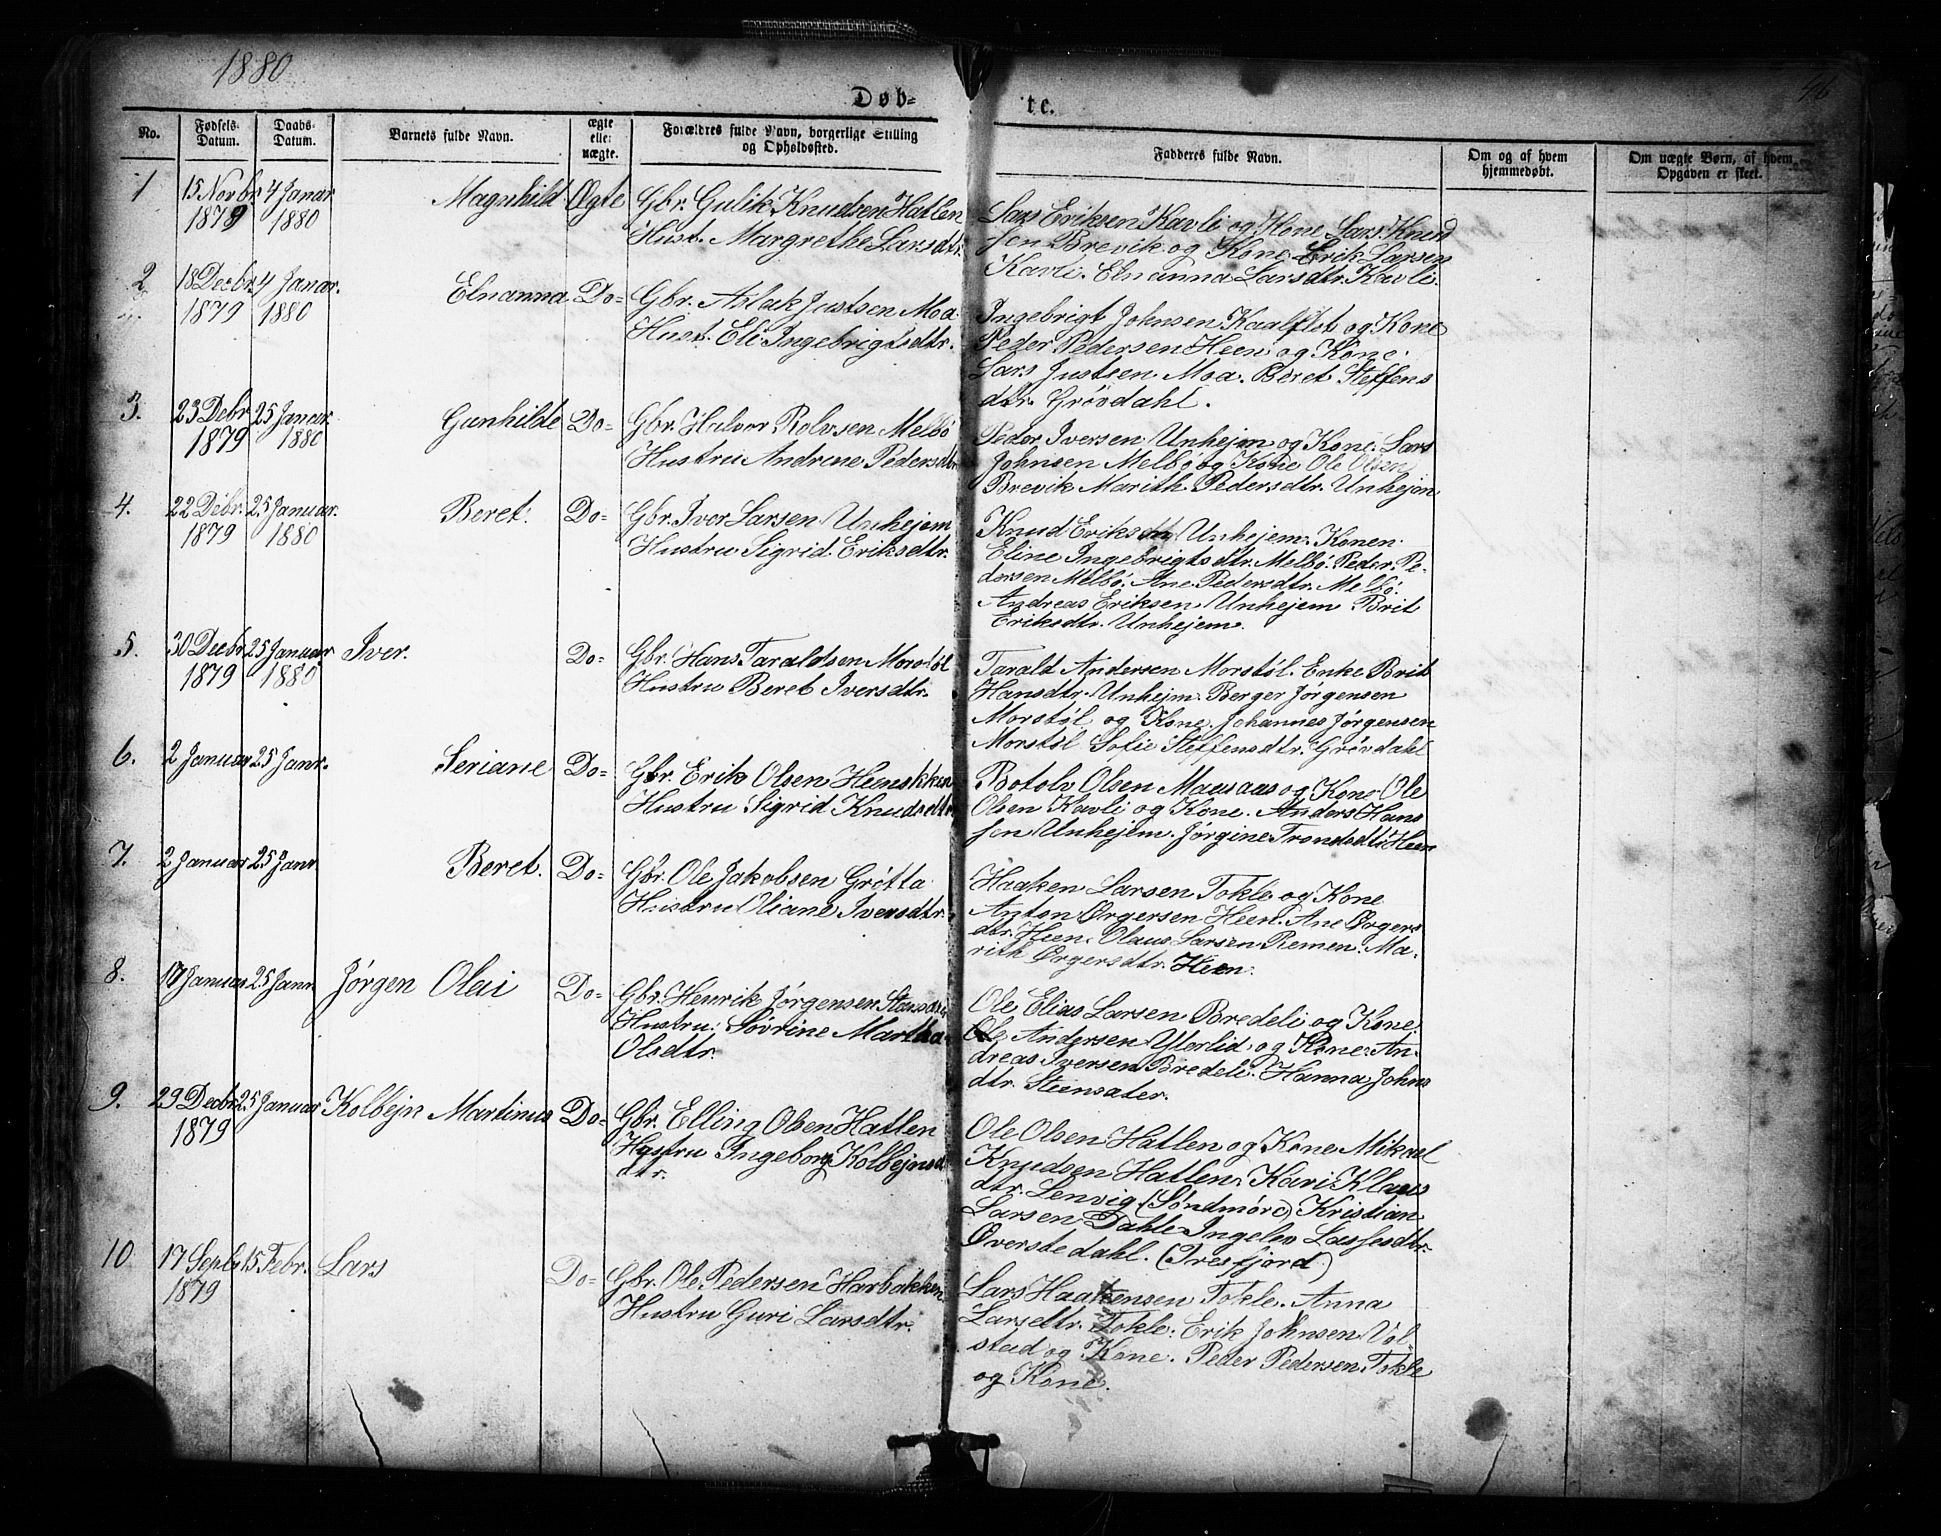 1880
96
Døb-
te.
No.
Fødsels-
Datum.
Daabs-
Datum.
Barnets fulde Navn.
ægte
elle:
uægte.
Forældres fulde Navn, borgerlige Stilling
og Opholdssted.
Fadderes fulde Navn.
Om og af hvem
hjemmedøbt.
Om uægte Børn, af hvem
Opgaven er skeet.
1
15 Novbr
1879
4 Januar
1880
Magnhild
Ægte
Gbr. Gulik Knudsen Hatlen
Hust. Margrethe Larsdtr.
Lars Eriksen Kavli og Kone Lars Knud
sen Brevik og Kone Erik Larsen
Kavli. Elnanna Larsdtr. Kavli.
2
18 Decbr.
1879
4 Januar.
1880
Elnanna
Do=
Gbr. Aslak Justsen Moa
Hust. Eli Ingebrigtsdtr.
Ingebrigt Johnsen Kaalflot og Kone
Peder Pedersen Heen og Kone.
Lars Justsen Moa. Beret Steffens
dtr. Grøvdahl.
3.
23 Debr
1879
25 Januar
1880
Gunhilde
Do=
Gbr. Halvor Rolvsen Melbø
Hustru Andrine Pedersdtr
Peder Iversen Unhejm og Kone. Lars
Johnsen Melbø og Kone Ole Olsen
Brevik Marith Pedersdtr. Unhejm
4.
22 Debr.
1879
25 Januar.
1880
Beret.
Do=
Gbr. Iver Larsen Unhejem
Hustru Sigrid Eriksdtr.
Knud Eriksen Unhejem. Konen
Eline Ingebrigtsdtr. Melbø. Peder Pe-
dersen Melbø. Ane Pedersdtr. Melbø.
Andreas Eriksen Unhejem Brit
Eriksdtr. Unhejem.
5.
30 Decbr
1879
25 Januar
1880
Iver.
Do=
Gbr. Hans Taraldsen Morstøl
Hustru Beret Iversdtr.
Tarald Andersen Morstøl. Enke Brit
Hansdtr. Unhejm. Berger Jørgensen
Morstøl og Kone. Johannes Jørgensen
Morstøl Sofie Steffensdtr. Grøvdahl
6.
2 Januar
25 Janr.
Seriane
Do=
Gbr. Erik Olsen
Hustru Sigrid Knudsdtr
Botolv Olsen Maasaas og Kone Ole
Olsen Kavli og Kone. Anders Hans
sen Unhejem. Jørgine Trondsdtr Heen
7.
2 Januar
25 Janr
Beret.
Do=
Gbr. Ole Jakobsen Grøtta
Hustru Oliane Iversdtr.
Haaken Larsen Tokle og Kone
Anton Ørgersen Heen. Ane Ørgers
dtr. Heen. Olaus Larsen Remen. Ma-
rith Ørgersdtr. Heen.
8.
Januar
25 Janr
Jørgen Olai
Do=
Gbr. Henrik Jørgensen
Hustru. Søvrine Martha
Olsdtr.
Ole Elias Larsen Bredeli og Kone.
Ole Andersen Yterlid og Kone. An-
dreas Iversen Bredeli. Hanna Johns
dtr. Steensæter.
9.
29 Decbr
1879
25 Januar
Kolbejn Martinus
Do=
Gbr. Elling Olsen Hatlen
Hustru Ingeborg Kolbejns
dtr.
Ole Olsen Hatlen og Kone Mikael
Knudsen Hatlen. Kari Klaus
dtr. Lenvig (Søndmøre) Kristian
Larsen Dahle Ingelev Lassesdtr.
Øverstedahl. (Tresfjord)
10
17 Septbr
1879
15 Febr.
Lars
Do=
Gbr. Ole Pedersen Harbakken
Hustru Guri Larsdtr.
Lars Haakensen Tokle. Anna
Larsdtr. Tokle. Erik Johnsen Vol
stad og Kone. Peder Pedersen Tokle
og Kone.